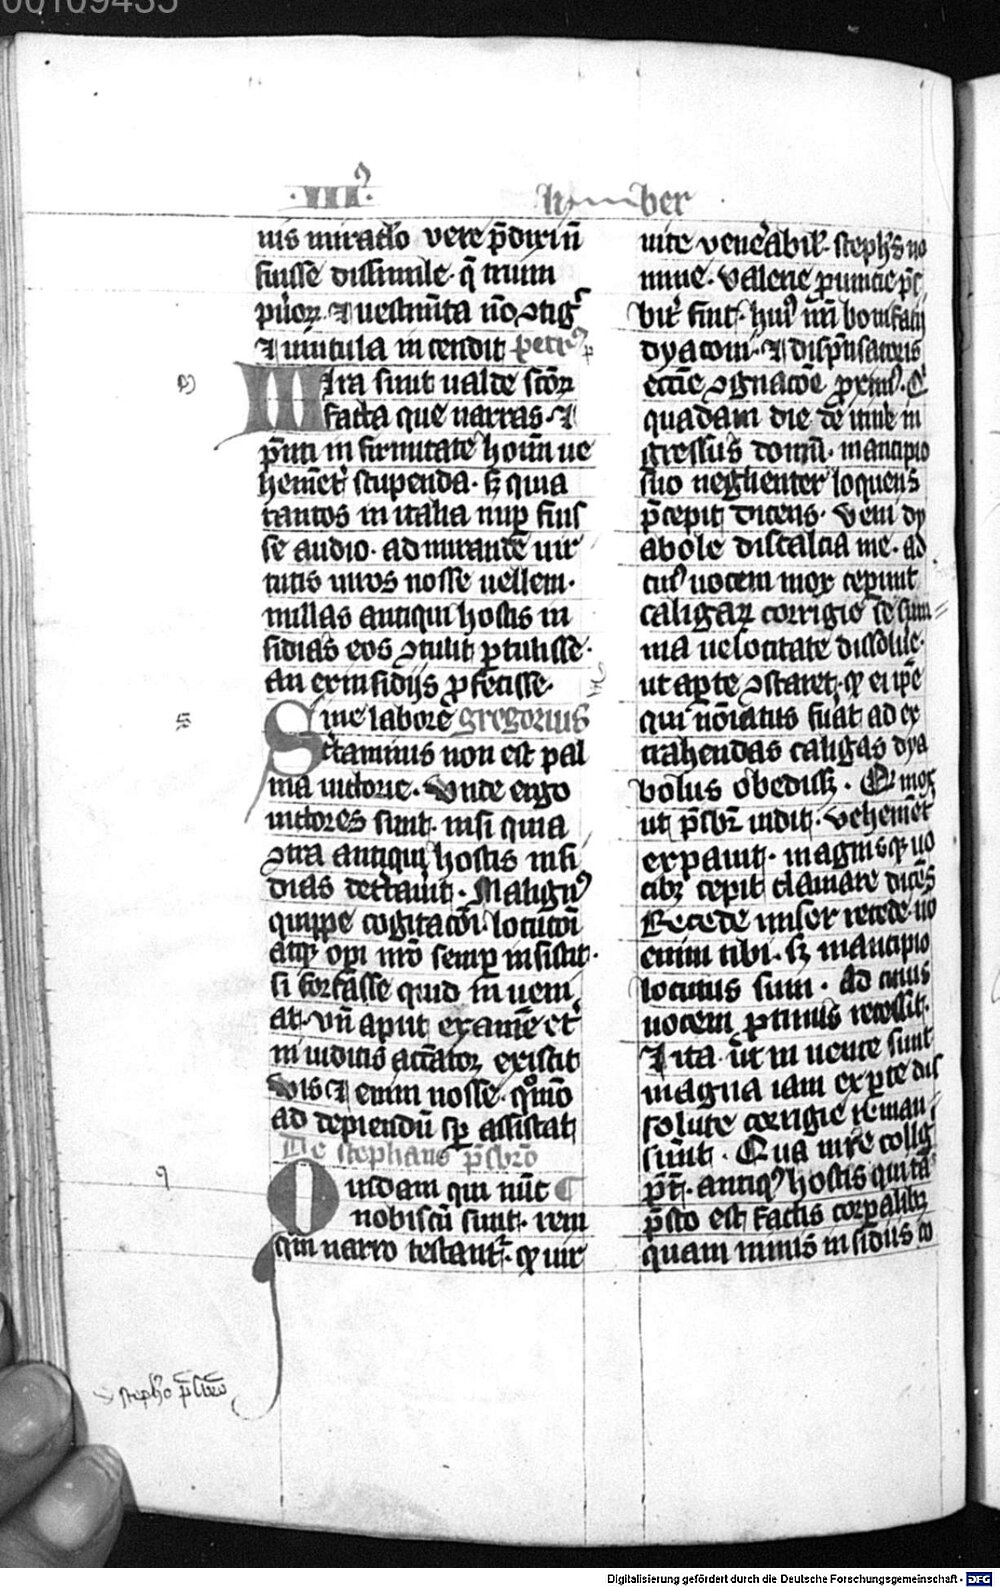 00109435
·III·
li ber
uis miraclo vere p̄dixiū
fuisse dissimile· q̄ trium
puerorꝫ ⁊ uestimēta nō ꝯtigꝰ
⁊ uincula incendit petrꝰ
Mira sunt ualde scōꝝ
facta que narras· ⁊
p̄nti infirmitate hoīm ue
hemēt̉ stupenda· sꝫ quia
tantos in italia nuꝑ fuis
se audio· admirande uir
tutis uiros nosse uellem·
nullas antiqui hostis in
sidias eos ꝯtulit ꝑtulisse·
an ex insidijs ꝓfecisse·
Sine labore gregorius
c̄taminis non est pal
ma uictorie· Unde ergo
uictores sunt· nisi quia
ꝯtra antiqui hostis insi
dias dec̄tauit· Malignꝰ
quippe cogitacōi· locucōi
atqꝫ opi nr̄o semꝑ insistit·
si forfasse quid inueni
at· vn̄ aput examē et̉
ni iudicis accātor existit
Vis ⁊ enim nosse· qm̊o
ad decipiendū sꝑ assistat
De stephano p̄sbr̄o
Quidam qui nūc
nobiscū sunt· rem
quā narro testant̉· qꝫ uir
uite venerabil̉· stephꝰs no
mine· valerie prouincie p̄s
bit̉ fuit· huiꝰ nr̄i bonifacij
dyaconi· ⁊ disp̄nsatoris
eccīe ꝯgnacōe ꝓximꝰ· Q̄
quadam die de itinere in
gressus domū· mancipio
suo negligenter loquens
p̄cepit dicens· Veni dy
abole discalcia me· ad
cuiꝰ uocem mox ceperunt
caligaꝝ corrigie se sum
ma uelocitate dissolue·
ut aꝑte ꝯstaret· qꝫ ei ip̄e
qui nōiatus fuāt ad ex
trahendas caligas dya
bolus obedissꝫ· Qd̉ mox
ut p̄sbr̄ uidit· vehemēt̉
expauit· magnisqꝫ uo
cibꝫ cepit clamare dicēs
Recede miser recede· nō
enim tibi· sꝫ mancipio
locutus sum· Ad cuius
uocem ꝓtinus recessit·
⁊ ita ut inuente sunt
magna iam ex ꝑte dis
solute corrigie reman
sūnt· Qua in re collig̉
pt̄· antiqꝰ hostis qui tā
p̄sto est factis corꝑalibꝫ
quam nimis insidiis co
stepho p̄sbrō
Digitalisierung gefördert durch die Deutsche Forschungsgemeinschaft - DFG